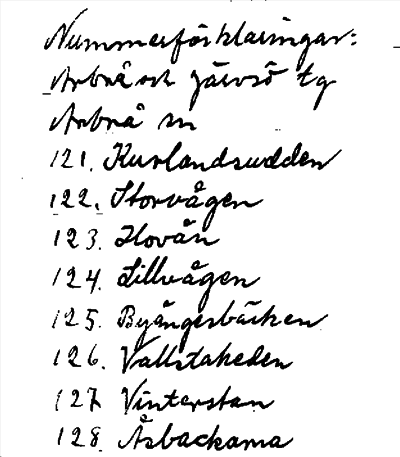 Nummerförklaringar:
Arbrå och Järvsö tg
Arbrå sn
121. Kurlandsudden
122. Storvågen
123. Hovån
124. Lillvågen
125. Byångesbäcken
126. Vallstaheden
127 Vinterstan
128. Åsbackarna